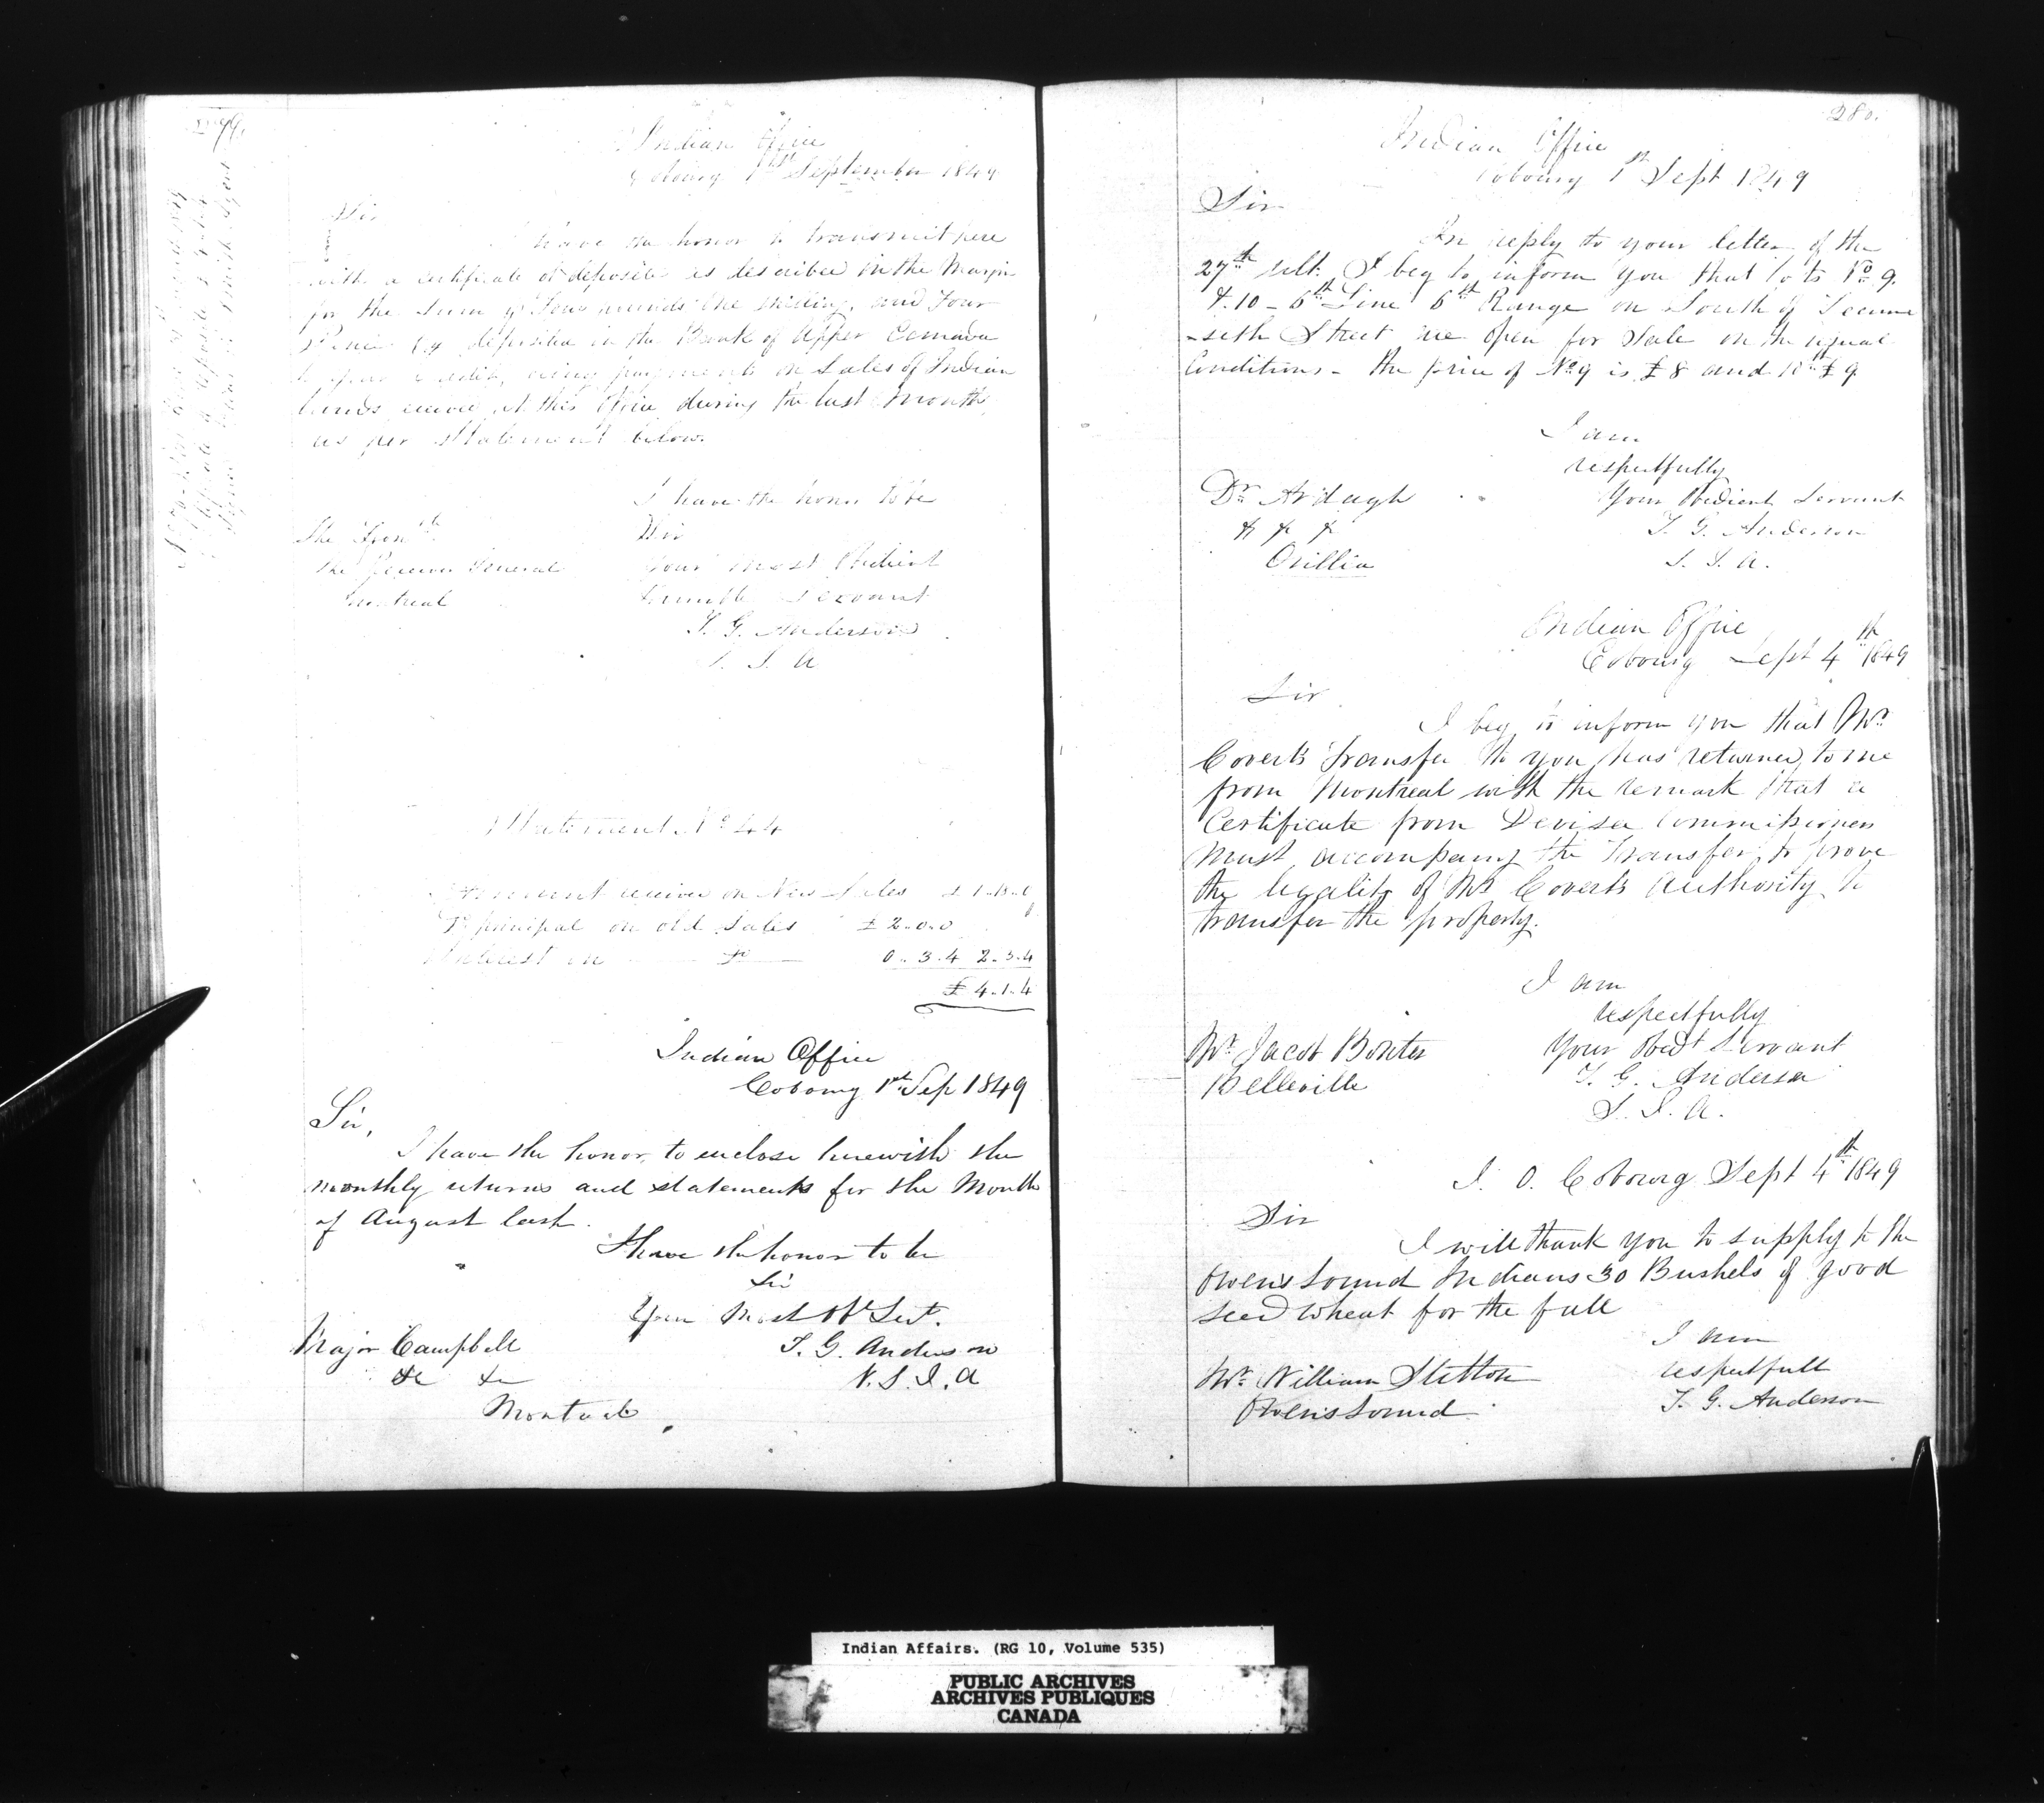 279.
Indian Office
Cobourg 1st September 1849
Sir
I have the honor to transmit here
with a certificate of deposite as described in the Margin
for the Sum of Four pounds One shilling, and Four
Pence deposited in the Bank of Upper Canada
to your credit, being payments on Sales of Indian
lands received at this Office during the last Month
as per Statement below.
I have the honor to be
Sir
Your Most Obedient
humble Servant
T. G. Anderson
S. I. A
The Honble
The Receiver General
Montreal
Statement No 44
Amount received on New Sales £ 1.18.0
Principal on old Sales £ 2.0.0
Interest on do 0.3.4 2.3.4
£ 4.1.4
Indian Office
Cobourg 1st Sep 1849
Sir,
I have the honor to enclose herewith the
monthly returns and statements for the Month
of August last.
I have the honor to be
Sir
Your Most Obt Sert.
T. G. Anderson
V. S. I. A
Major Campbell
&c &c
Montreal
280.
Indian Office
Cobourg 1st Sept 1849
Sir
In reply to your letter of the
27th ult. I beg to inform you that Lots No 9.
& 10 - 6th Line 6th Range on South of Tecum
-seth Street are open for Sale on the usual
Conditions - the price of No 9 is £8 and 10 £9
I am
respectfully
Your Obedient Servant
T. G. Anderson
S. I. A.
Dr. Ardagh
& & &
Orillia
Indian Office
Cobourg Sept 4th 1849
Sir
I beg to inform you that Mr
Covert's Transfer to you has returned to me
from Montreal with the remark that a
Certificate from Devisee Commissioners
Must accompany the Transfer to prove
the legality of Mr Covert's Authority to
transfer the property.
I am
respectfully
Your Obedt Servant
T. G. Anderson
S. I. A.
Mr. Jacob Bonter
Belleville
I. O. Cobourg Sept 4th 1849
Sir
I will thank you to supply to the
Owens Sound Indians 30 Bushels of good
seed wheat for the fall
I am
respectfull
T. G. Anderson
Mr. William Stutton
Owens Sound
Indian Affairs. (RG 10, Volume 535)
PUBLIC ARCHIVES
ARCHIVES PUBLIQUES
CANADA